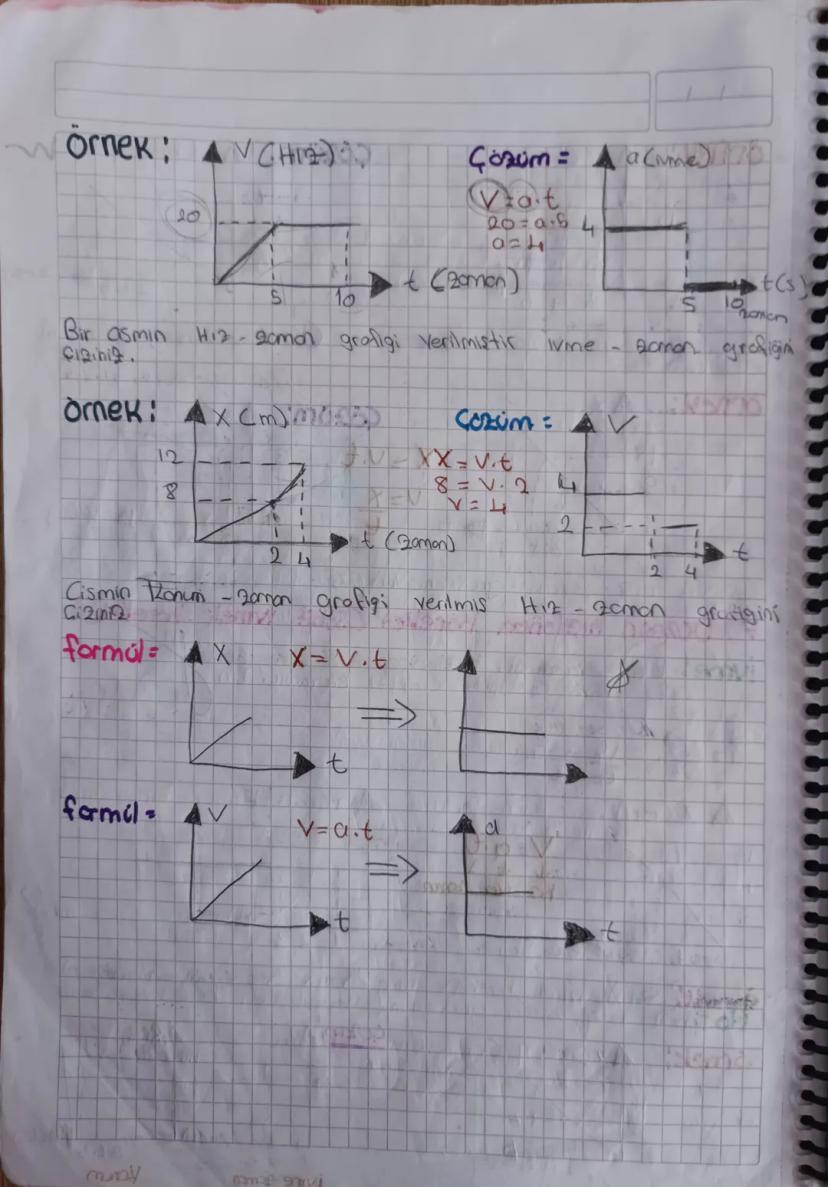 örnek:
V (Hız)
20
5
10
t (zaman)
Çözüm =
a (ivme)
V = a.t
20 = a.5
a = 4
4
5
10
t(s)
zaman
Bir cismin Hız - zaman grafigi verilmiştir ivme - zaman grafigini
çiziniz.
örnek:
X (m)
12
8
2
4
t (zaman)
Çözüm =
X = V.t
8 = V. 2
V = 4
V
4
2
2
4
t
Cismin Konum - zaman grafigi verilmiş Hız - zaman grafigini
Çiziniz
formül =
X
X = V.t
t
⇒
formül =
V
V = a.t
t
⇒
a
t